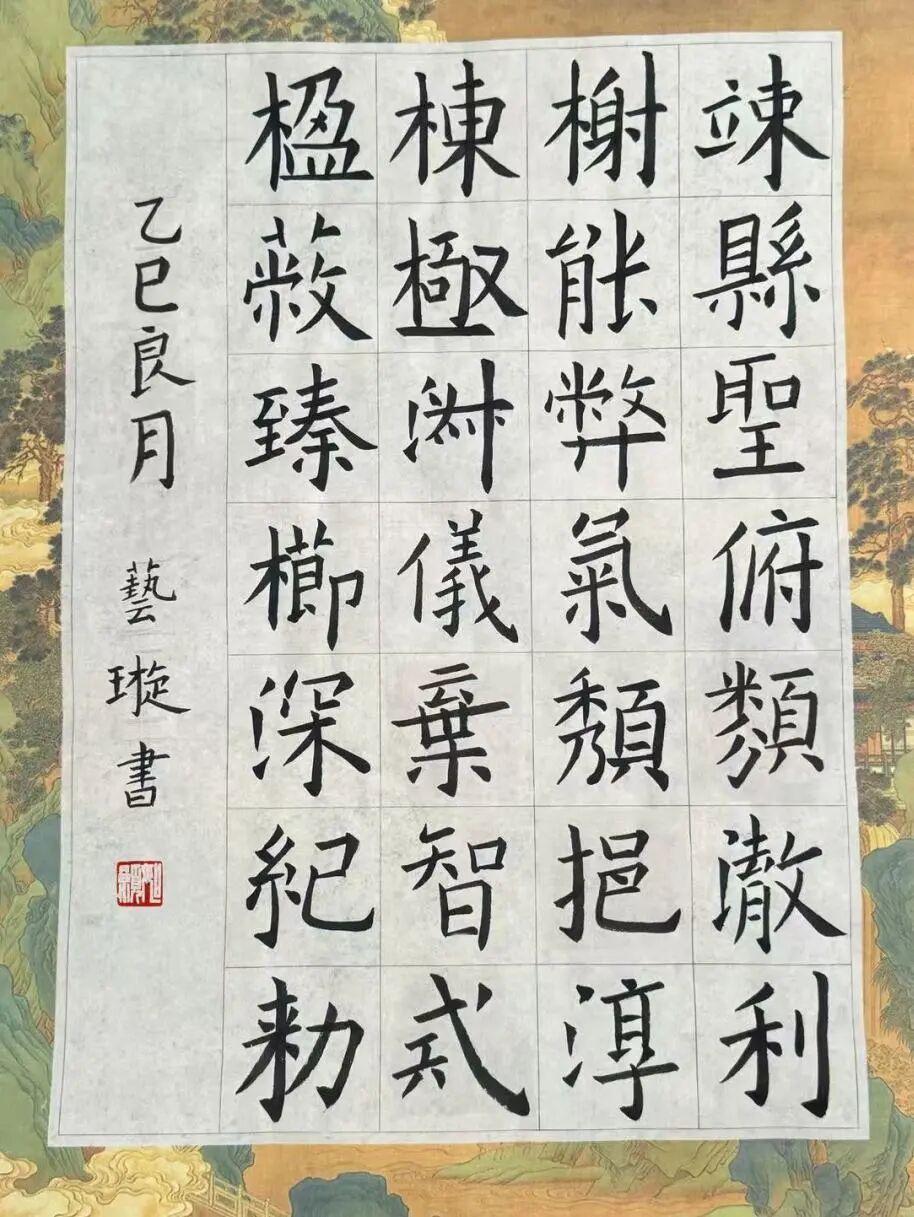 竦縣聖俯類澈利
榭能弊氣頹挹淳
棟極儀棄智式
楹蔽臻櫛深紀勑
乙巳良月 藝璇書